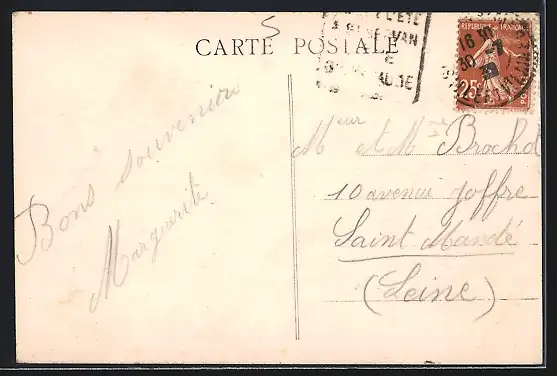 5
CARTE POSTALE
L'ÉTÉ
REPUBLIQUE FRANÇAISE
16 30
30
25c
Bons souvenirs
Marguerite
Meur et Mme Brochot
10 avenue Joffre
Saint Mandé
(Seine)